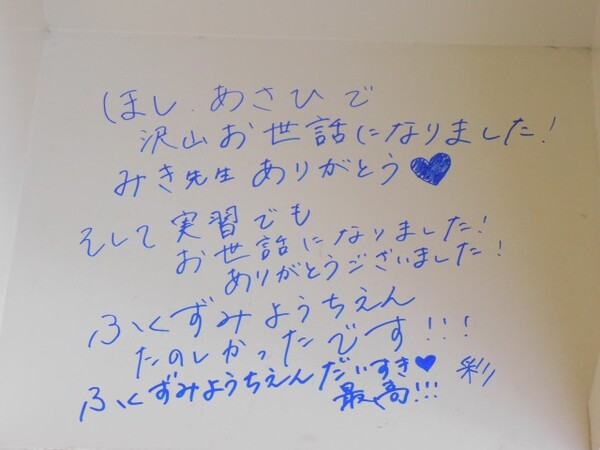 ほし、あさひで
沢山お世話になりました!
みき先生ありがとう♥
そして実習でも
お世話になりました!
ありがとうございました!
ふくずみようちえん
たのしかったです!!!
ふくずみようちえんだいすき♥ 彩り
最高!!!